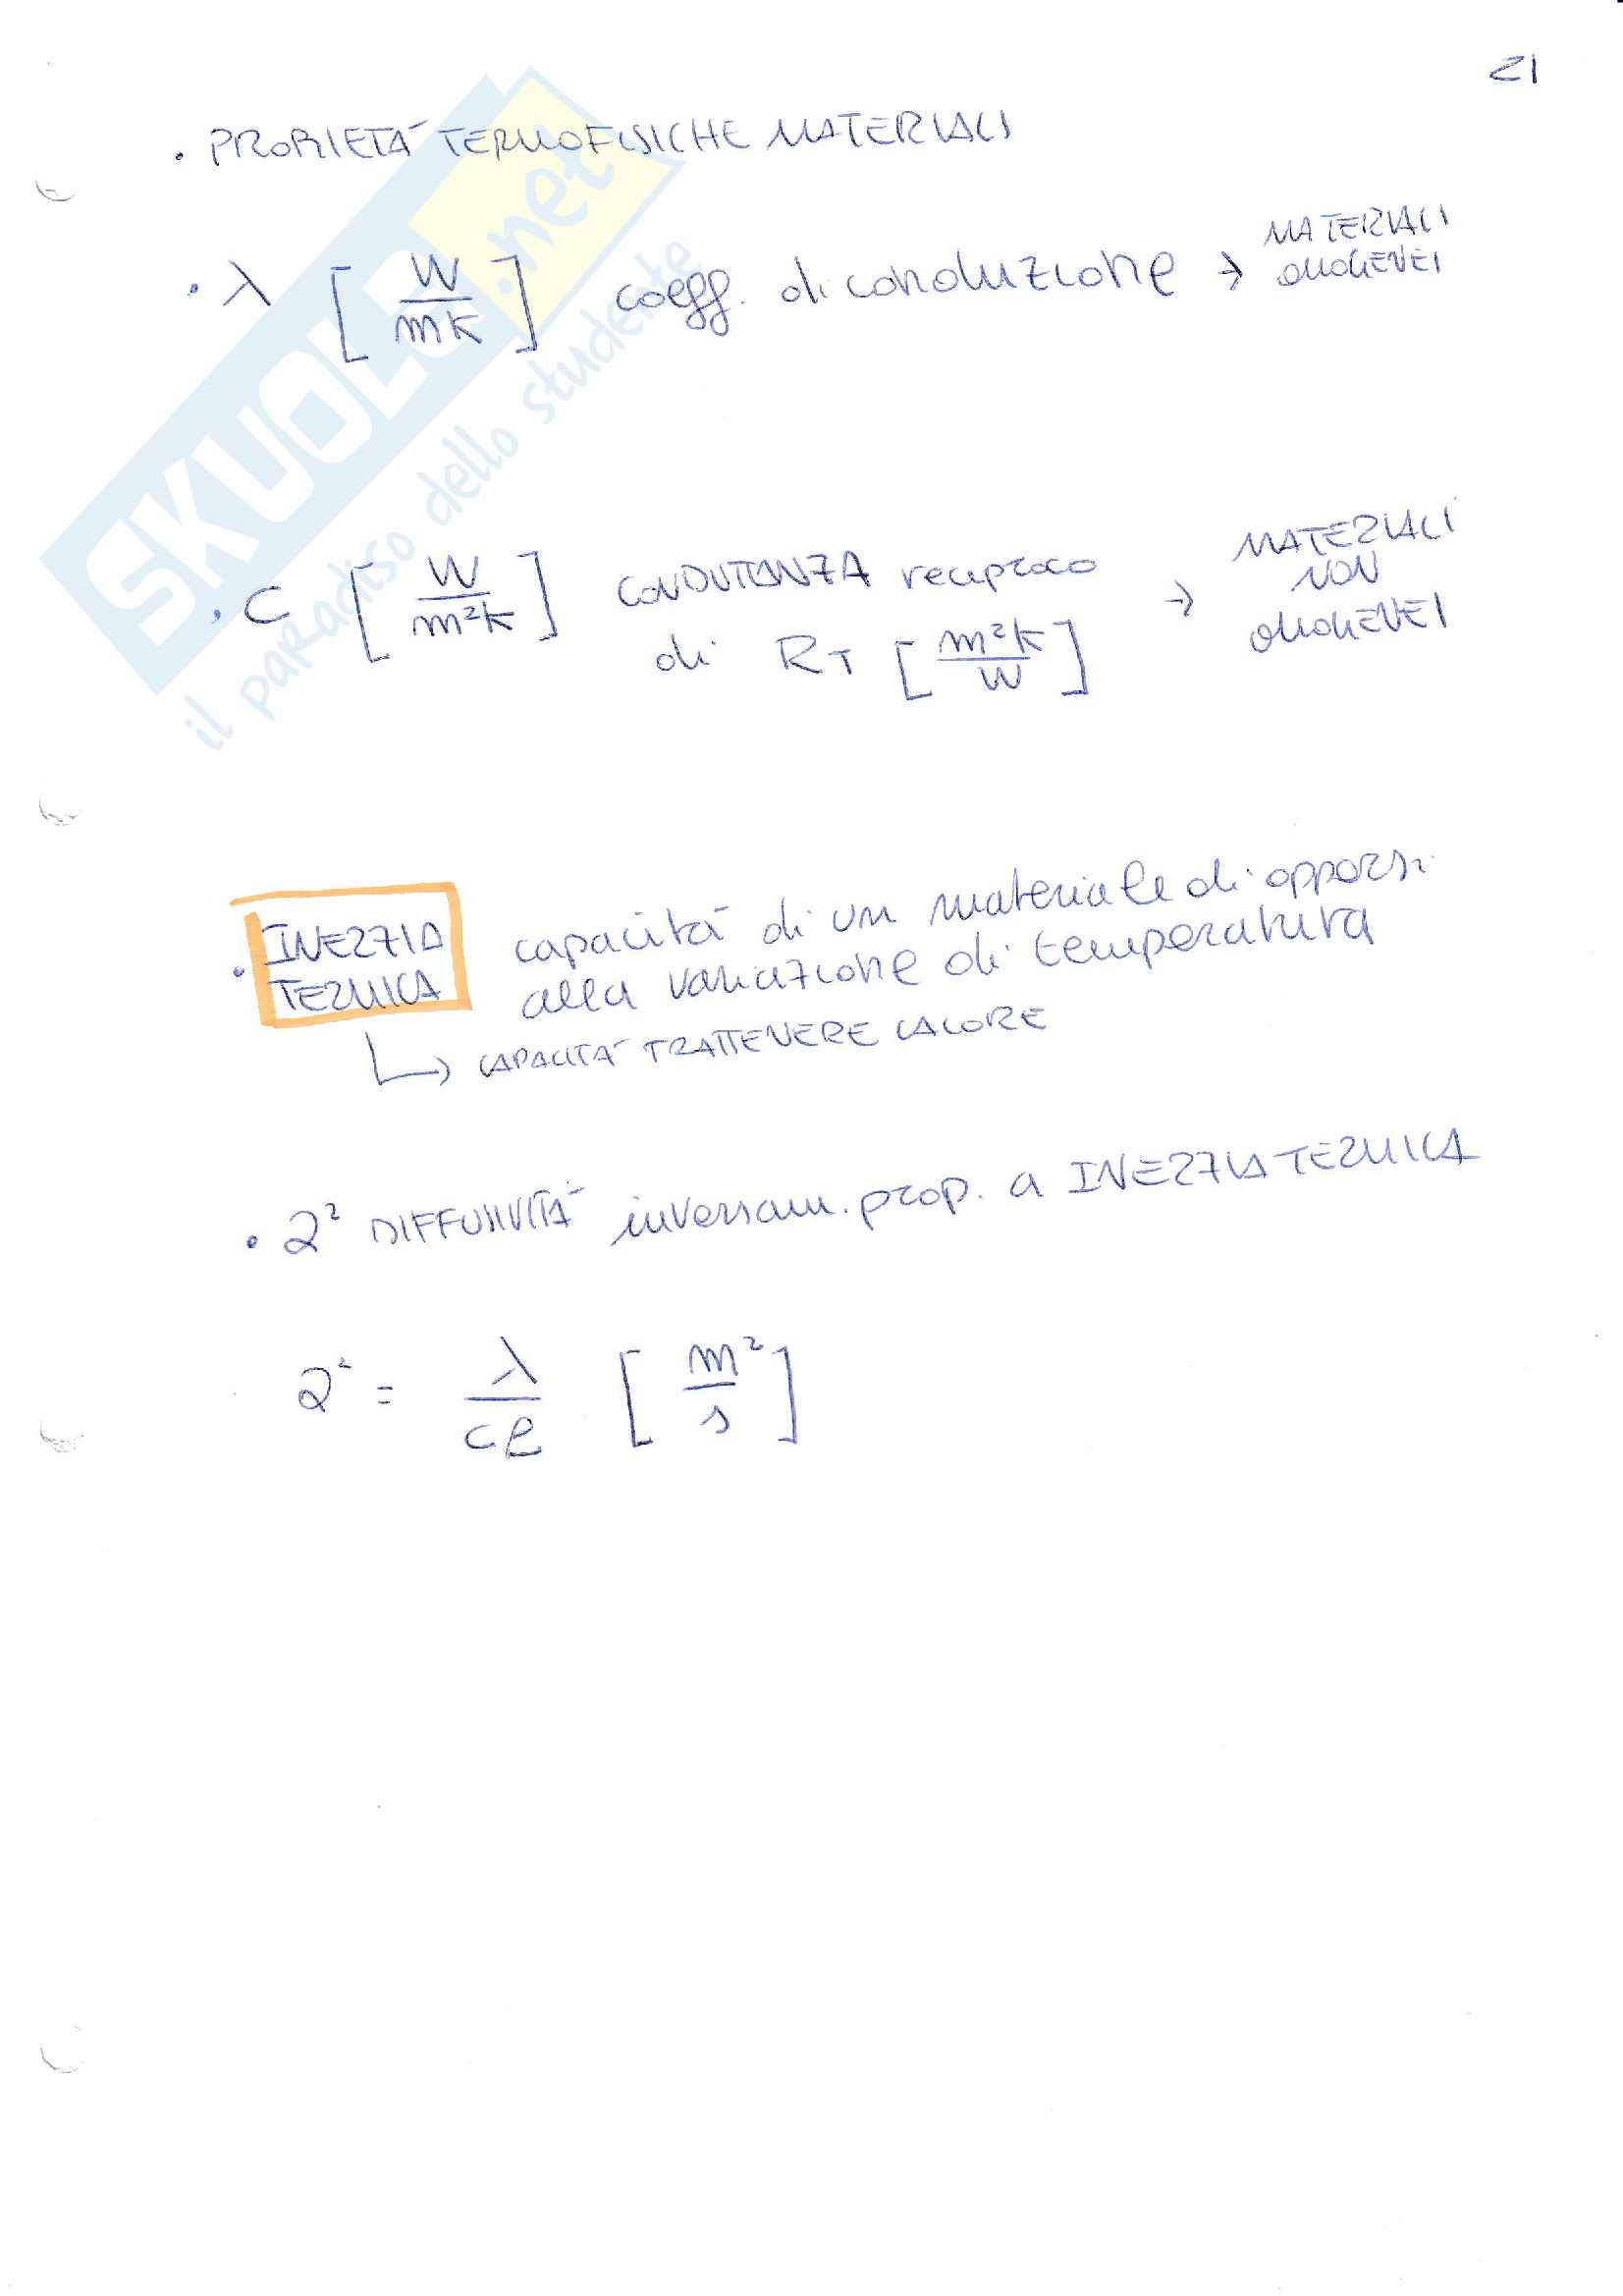 21
• PROPRIETÀ TERMOFISICHE MATERIALI
• λ [W/mK] coeff. di conduzione → MATERIALI OMOGENEI
• C [W/m²K] CONDUTTANZA reciproco → MATERIALI NON OMOGENEI
di RT [m²K/W]
• INERZIA TERMICA capacità di un materiale di opporsi
alla variazione di temperatura
↳ CAPACITÀ TRATTENERE CALORE
• a² DIFFUSIVITÀ inversam. prop. a INERZIA TERMICA
a² = λ/cρ [m²/s]
SKUOLA.net
il paradiso dello studente